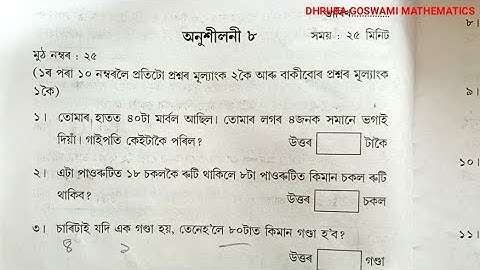 DHRUBA GOSWAMI MATHEMATICS
অনুশীলনী ৮
সময় : ২৫ মিনিট
৮।
মুঠ নম্বৰ : ২৫
(১ৰ পৰা ১০ নম্বৰলৈ প্ৰতিটো প্ৰশ্নৰ মূল্যাংক ২কৈ আৰু বাকীবোৰ প্ৰশ্নৰ মূল্যাংক
১কৈ)
৯।
১। তোমাৰ হাতত ৪০টা মাৰ্বল আছিল। তোমাৰ লগৰ ৪জনক সমানে ভগাই
দিয়াঁ। গাইপতি কেইটাকৈ পৰিল? উত্তৰ টাকৈ
১০।
২। এটা পাওৰুটিত ১৮ চকলকৈ ৰুটি থাকিলে ৮টা পাওৰুটিত কিমান চকল ৰুটি
থাকিব? উত্তৰ চকল
১১।
৩। চাৰিটাই যদি এক গণ্ডা হয়, তেনেহ'লে ৮০টাত কিমান গণ্ডা হ'ব?
৪ ১
উত্তৰ গণ্ডা